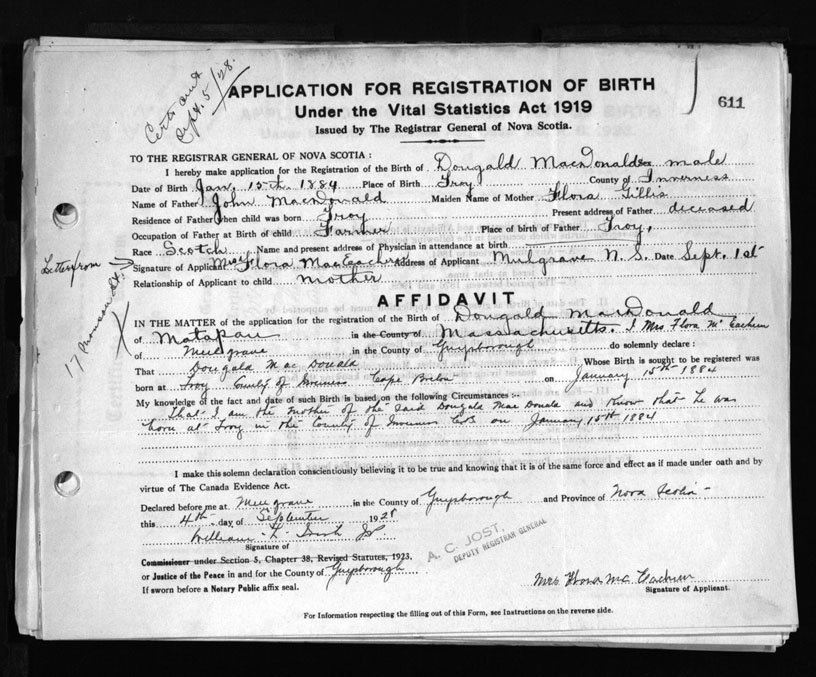 Certs and
Sept. 5/28.
APPLICATION FOR REGISTRATION OF BIRTH
Under the Vital Statistics Act 1919
611
Issued by The Registrar General of Nova Scotia.
TO THE REGISTRAR GENERAL OF NOVA SCOTIA :
I hereby make application for the Registration of the Birth of Dougald MacDonald Sex male
Date of Birth Jan. 15th 1884 Place of Birth Troy County of Inverness
Name of Father John MacDonald Maiden Name of Mother Flora Gillis
Residence of Father when child was born Troy Present address of Father deceased
Occupation of Father at Birth of child Farmer Place of birth of Father Troy,
Race Scotch Name and present address of Physician in attendance at birth
Letter from
Signature of Applicant Mrs Flora MacEachern Address of Applicant Mulgrave N. S. Date Sept. 1st
Relationship of Applicant to child mother
17 St.
AFFIDAVIT
IN THE MATTER of the application for the registration of the Birth of Dougald MacDonald
of Matapan in the County of Massachusetts. I Mrs Flora McEachern
of Mulgrave in the County of Guysborough do solemnly declare :
That Dougald MacDonald Whose Birth is sought to be registered was
born at Troy County of Inverness Cape Breton on January 15th 1884
My knowledge of the fact and date of such Birth is based on the following Circumstances :-
That I am the mother of the said Dougald MacDonald and know that he was
born at Troy in the County of Inverness CB on January 15th 1884
I make this solemn declaration conscientiously believing it to be true and knowing that it is of the same force and effect as if made under oath and by
virtue of The Canada Evidence Act.
Declared before me at Mulgrave in the County of Guysborough and Province of Nova Scotia
this 4th day of September 1928
William J.P.
Signature of
A. C. JOST,
DEPUTY REGISTRAR GENERAL
Commissioner under Section 5, Chapter 38, Revised Statutes, 1923,
or Justice of the Peace in and for the County of Guysborough
Mrs Flora McEachern
If sworn before a Notary Public affix seal.
Signature of Applicant.
For Information respecting the filling out of this Form, see Instructions on the reverse side.